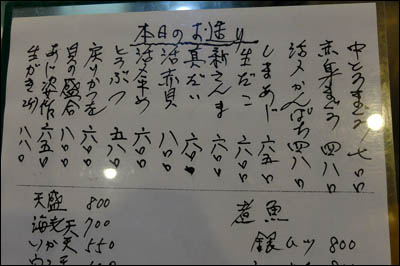 本日のお造り
中とろまぐろ 七〇〇
赤身まぐろ 四八〇
活〆かんぱち 四八〇
しまあじ 六五〇
生だこ 六〇〇
新さんま 六〇〇
真だい 六〇〇
活赤貝 八〇〇
活〆 六〇〇
とりぶつ 五八〇
戻りかつを 六〇〇
貝の盛合 八〇〇
あじ姿作 六五〇
生がき 八八〇
天盛 800
海老天 700
いか天 550
煮魚
銀ムツ 800